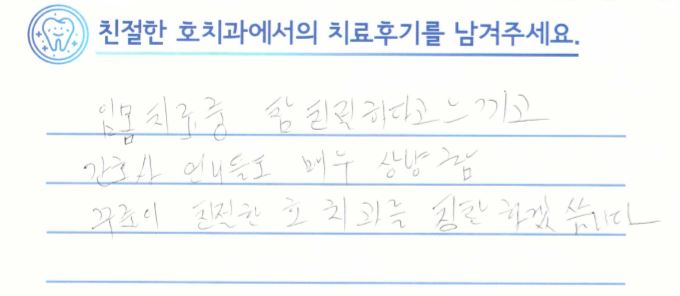 친절한 호치과에서의 치료후기를 남겨주세요.
잇몸 치료중 참 친절하다고 느끼고
간호사 언니들도 매우 상냥함
꾸준히 친절한 호 치과를 칭찬 하겠습니다